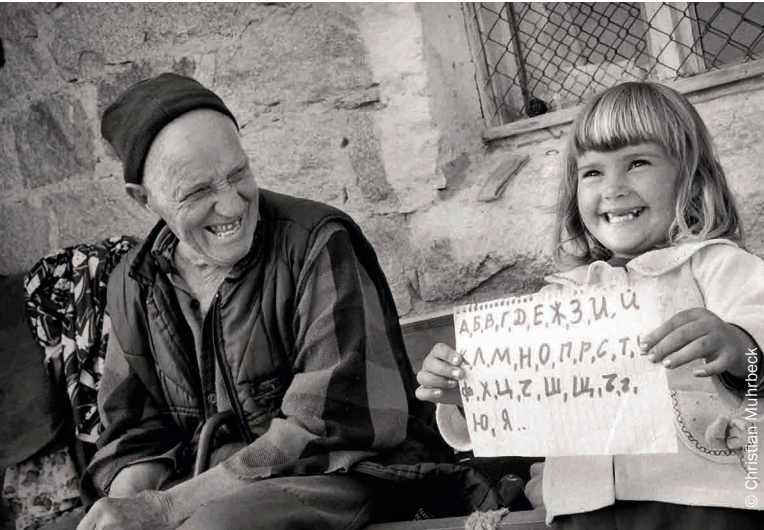 А,Б,В,Г,Д,Е,Ж,З,И,Й
К,Л,М,Н,О,П,Р,С,Т,У
Ф,Х,Ц,Ч,Ш,Щ,Ъ,ь,
Ю, Я..
© Christian Muhrbeck